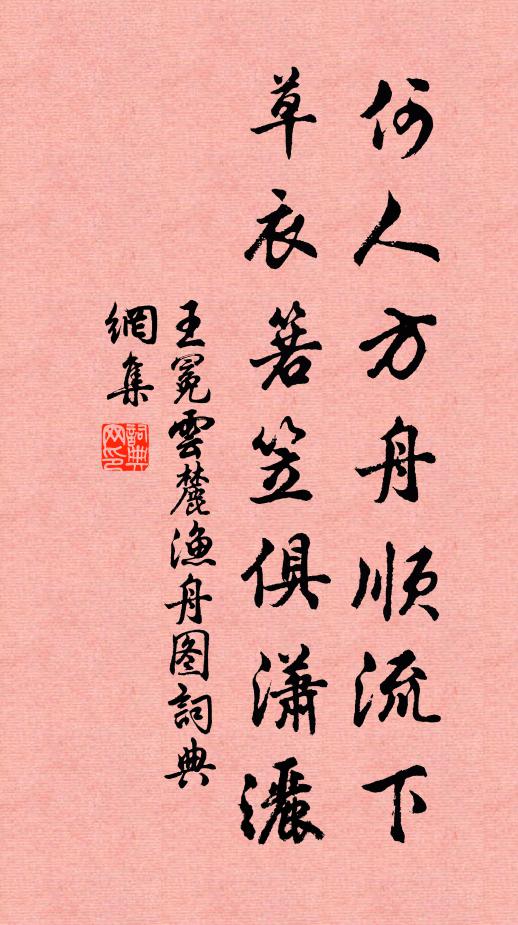 何人方舟順流下
草衣箬笠俱瀟灑
王冕雲麓漁舟图詞典
網集
詞典
网印